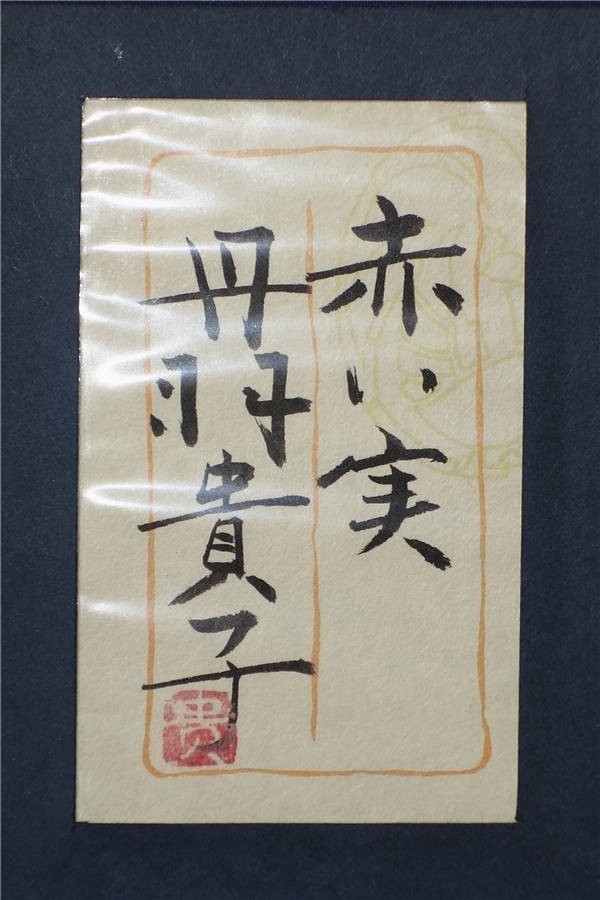 赤い実
丹羽貴子
貴